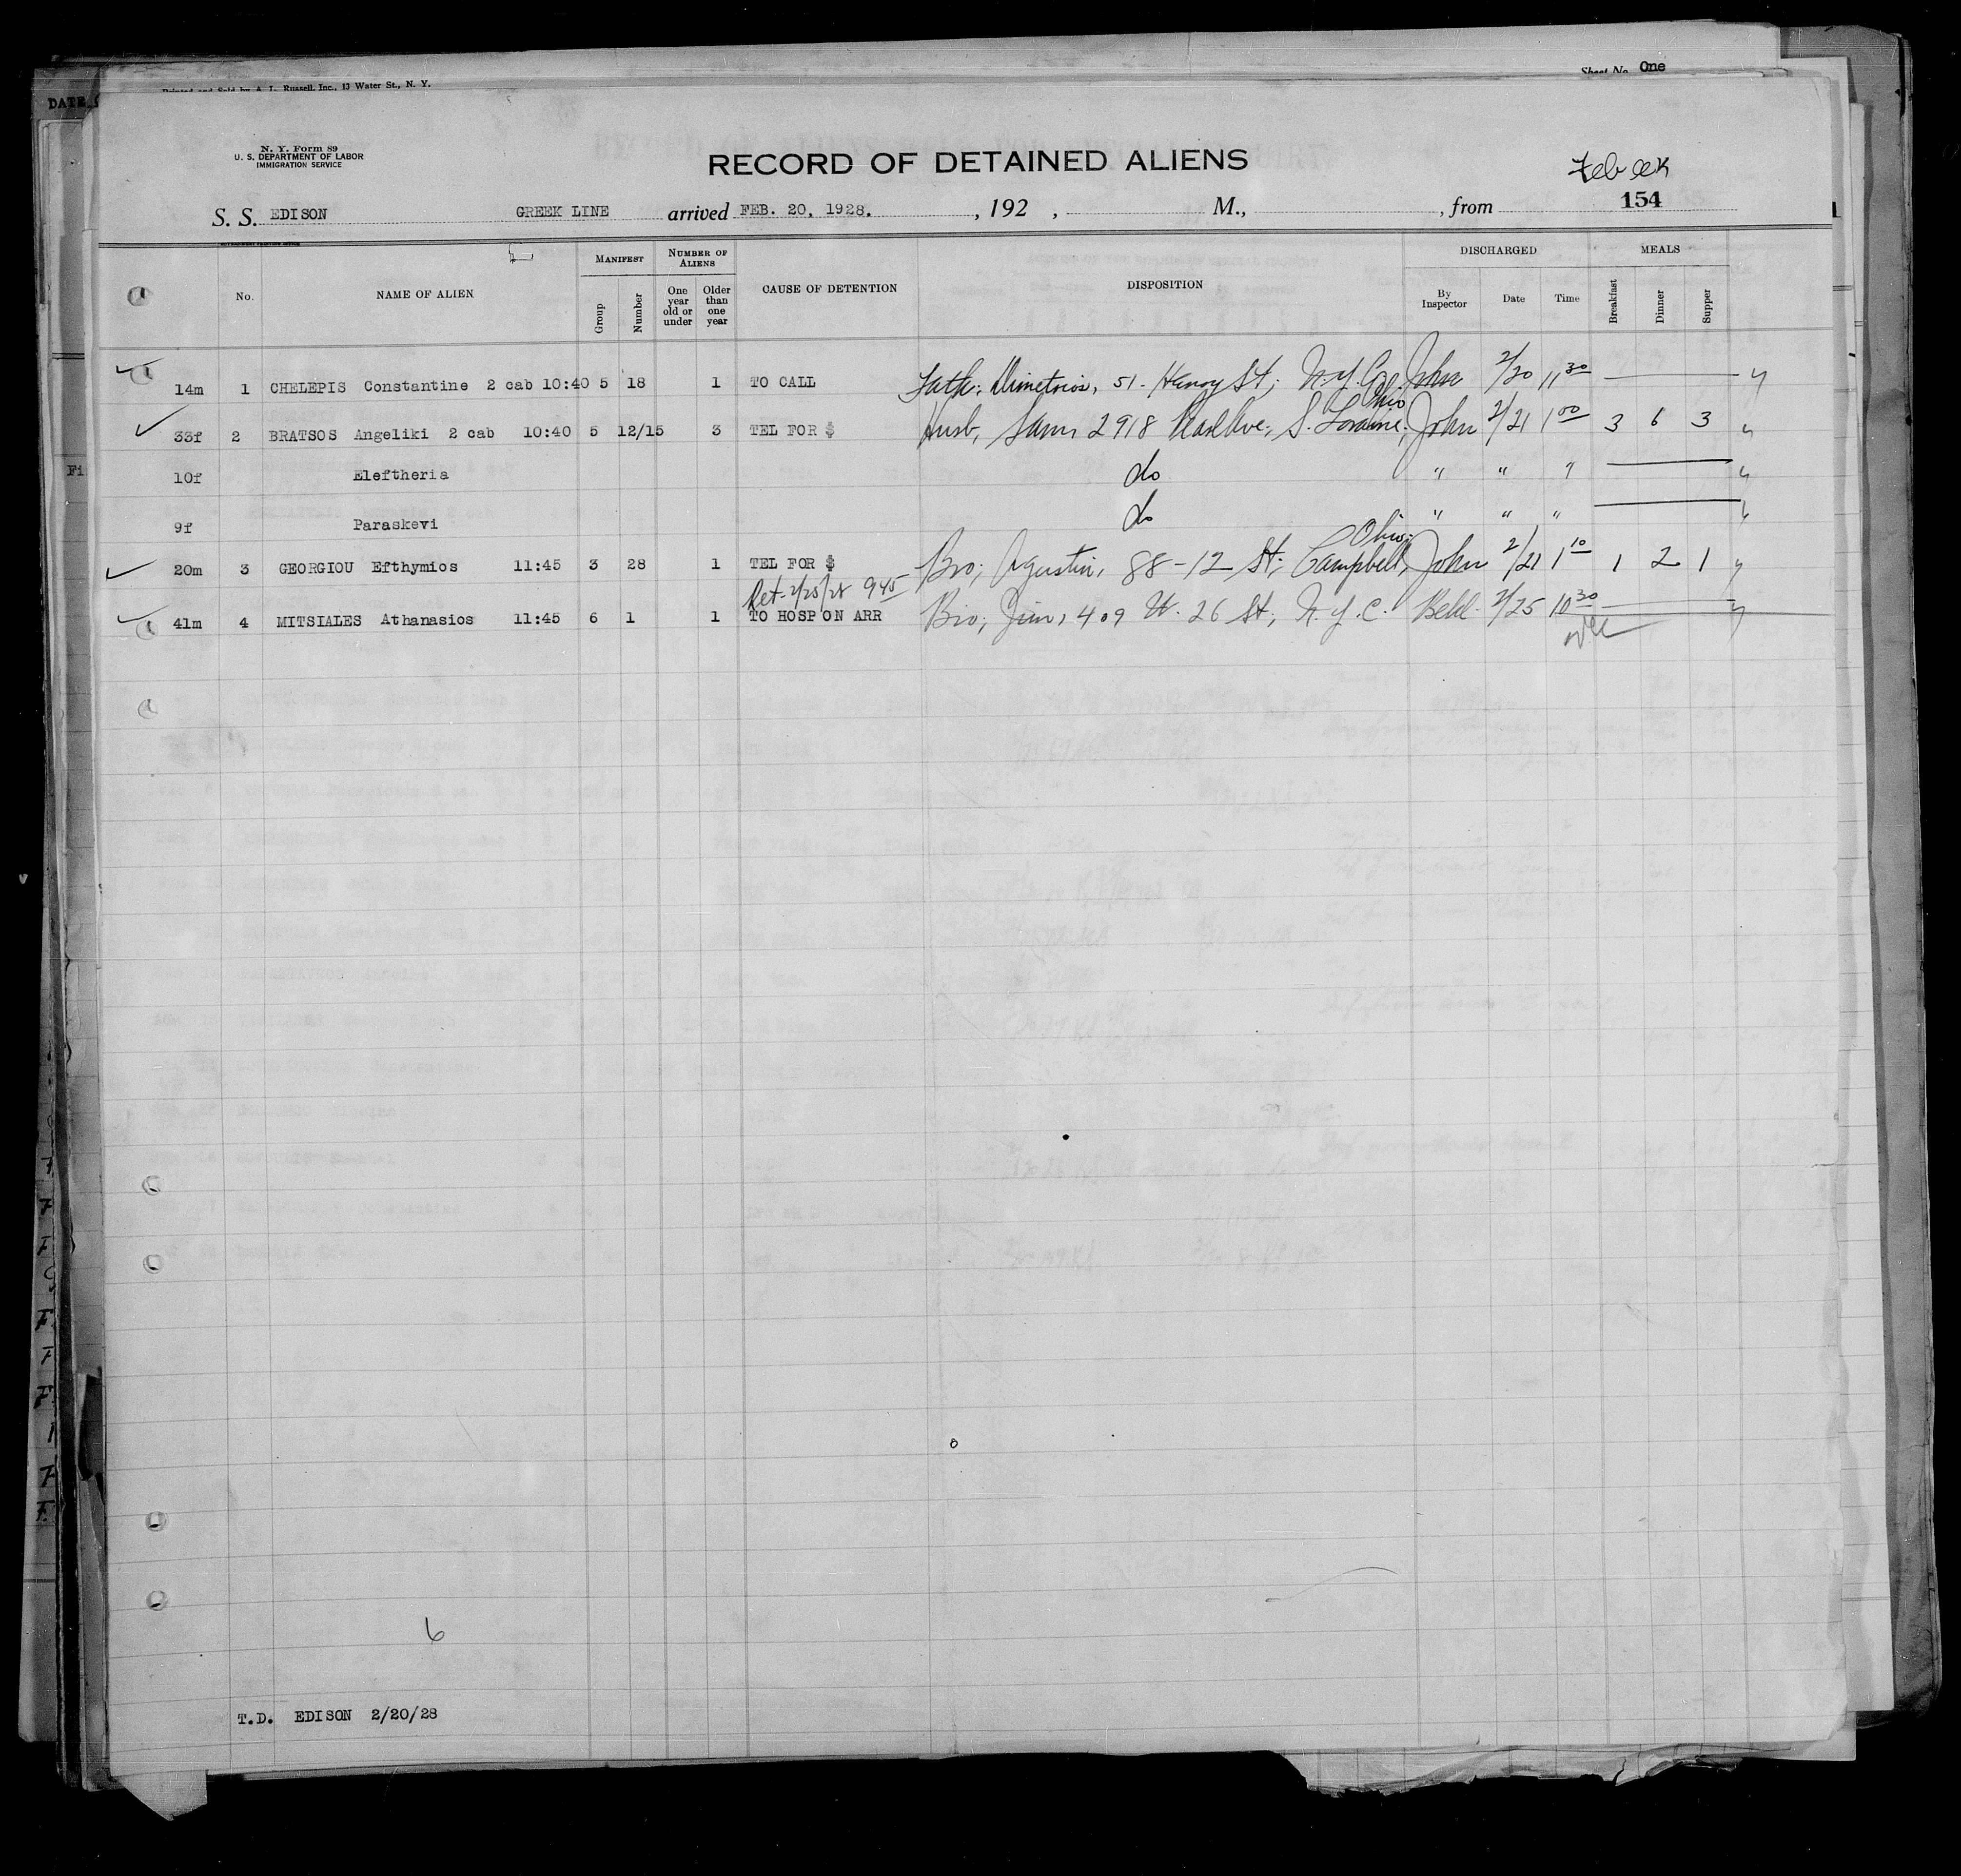 Sheet No. One
Printed and Sold by A. L. Russell, Inc., 13 Water St., N. Y.
DATE
N. Y. Form 89
U. S. DEPARTMENT OF LABOR
IMMIGRATION SERVICE
RECORD OF DETAINED ALIENS
154
S. S. EDISON GREEK LINE arrived FEB. 20, 1928. , 192 , M., , from
No. NAME OF ALIEN MANIFEST Group Number NUMBER OF ALIENS One year old or under Older than one year CAUSE OF DETENTION DISPOSITION DISCHARGED By Inspector Date Time MEALS Breakfast Dinner Supper
14m 1 CHELEPIS Constantine 2 cab 10:40 5 18 1 TO CALL Fath; Dimetrios, 51 Henry St; N.Y.C. John 2/20 11 30
Ohio
33f 2 BRATSOS Angeliki 2 cab 10:40 5 12/15 3 TEL FOR $ Husb, Sam, 2918 Pearl Ave; S. Loraine, John 2/21 1 00 3 6 3
Fi
10f Eleftheria do " " "
9f Paraskevi do " " "
Ohio;
20m 3 GEORGIOU Efthymios 11:45 3 28 1 TEL FOR $ Bro; Agustin, 88-12 St; Campbell, John 2/21 1 10 1 2 1
Ret 2/25/28 9 45
41m 4 MITSIALES Athanasios 11:45 6 1 1 TO HOSP ON ARR Bro; Jim, 409 W. 26 St; N.Y.C. 2/25 10 30
6
T.D. EDISON 2/20/28